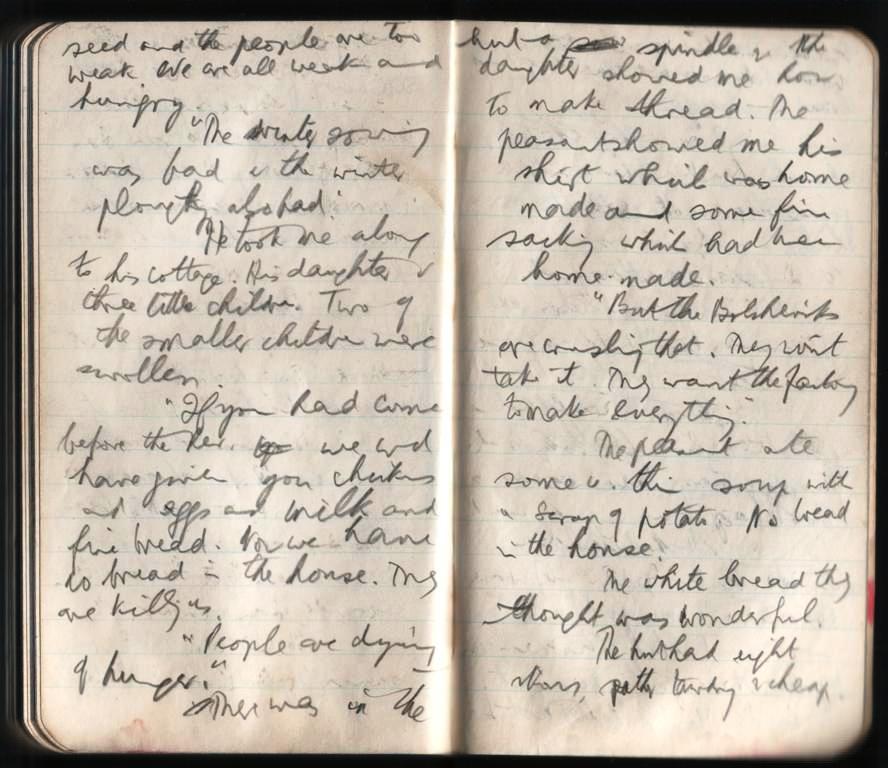 seed and the people are too
weak We are all weak and
hungry.
"The winter sowing
was bad & the winter
ploughg also bad."
He took me along
to his cottage. His daughter &
three little children. Two of
the smaller children were
swollen.
"If you had come
before the Rev. we wd
have given you chickens
and eggs and milk and
fine bread. Now we have
no bread in the house. They
are killg us.
"People are dying
of hunger."
There was in the
hut a spindle & the
daughter showed me how
to make thread. The
peasant showed me his
shirt which was home
made and some fine
sacking which had been
home-made.
"But the Bolsheviks
are crushing that. They won't
take it. They want the factory
to make everything."
The peasant ate
some thin soup with
a scrap of potato. No bread
in the house.
The white bread they
thought was wonderful.
The hut had eight
tawdry & cheap.